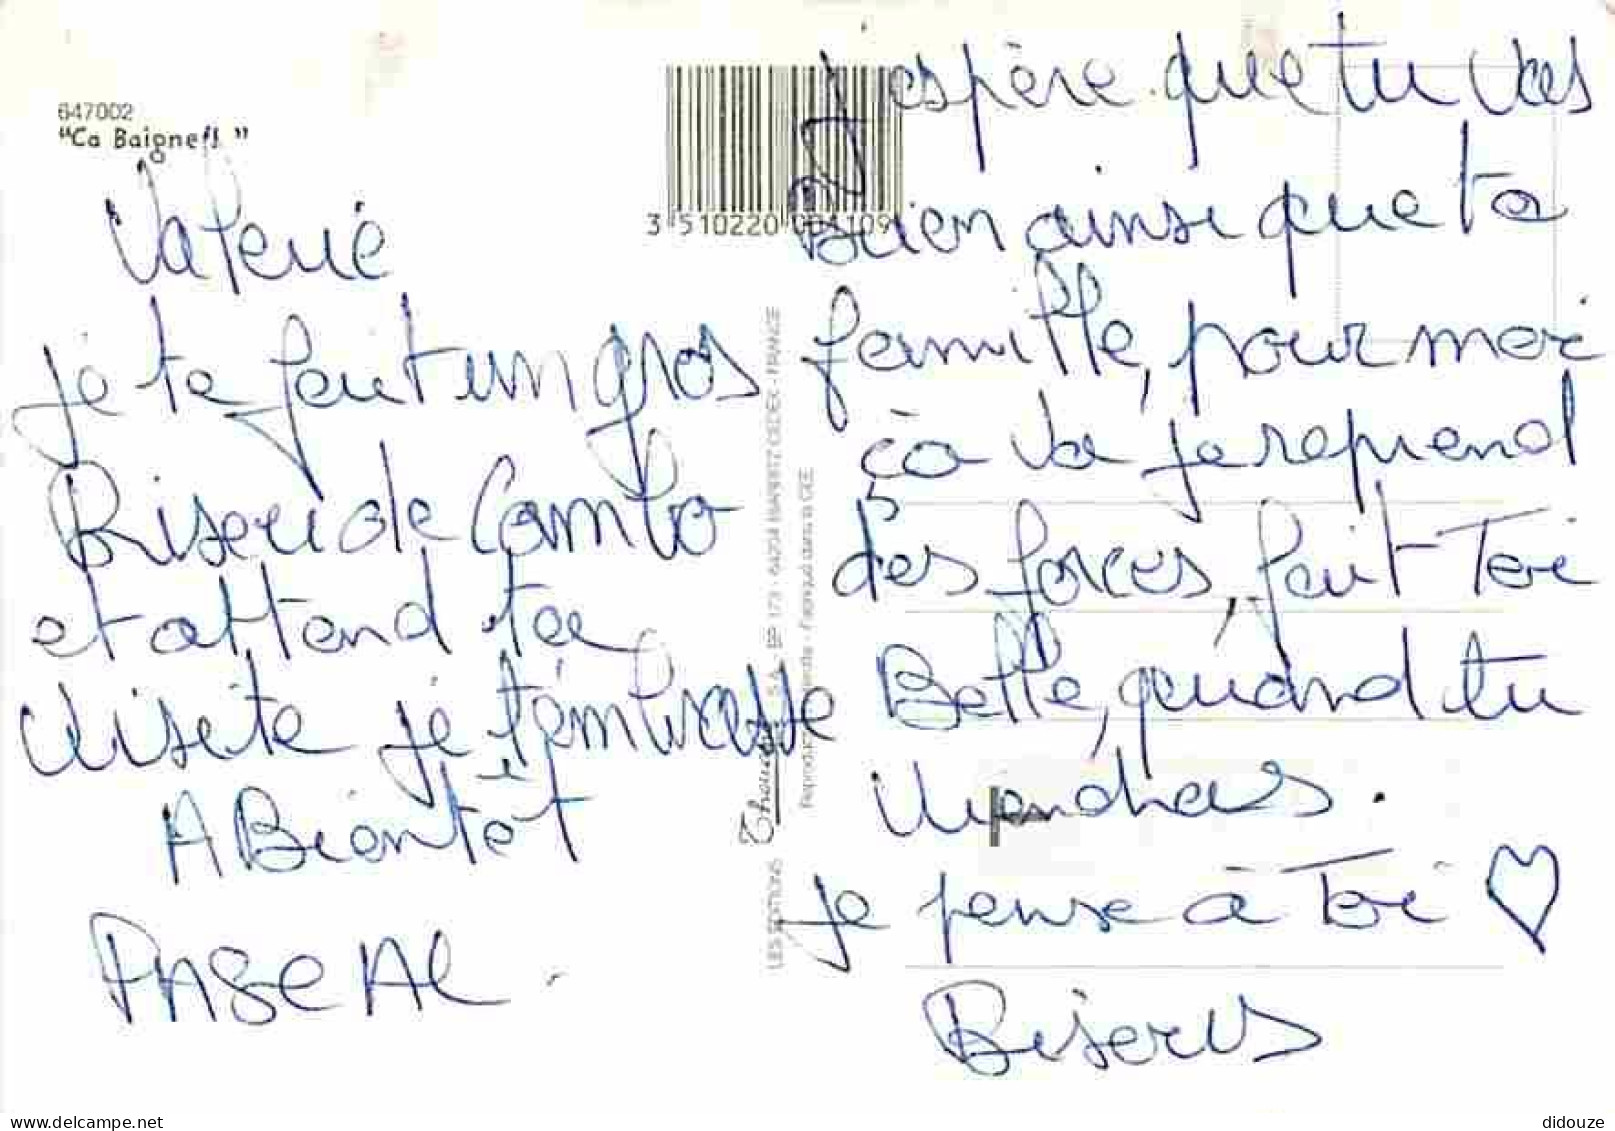 647002
"Ca Baigne!! "
Valerie
je te fait un gros
Biseri de Cambo
et attend ta
visite je t'embrasse
A Bientôt
PASCAL.
3 510220 001109
LES EDITIONS Thouand S.A. BP 173 - 64204 BIARRITZ CEDEX - FRANCE
Reproduction interdite - Fabriqué dans la CEE
j'espère que tu vas
Bien ainsi que ta
famille, pour moi
ça va je reprend
des forces, fait Toi
Belle, quand tu
viendras.
je pense à Toi
Biserus
didouze
delcampe.net